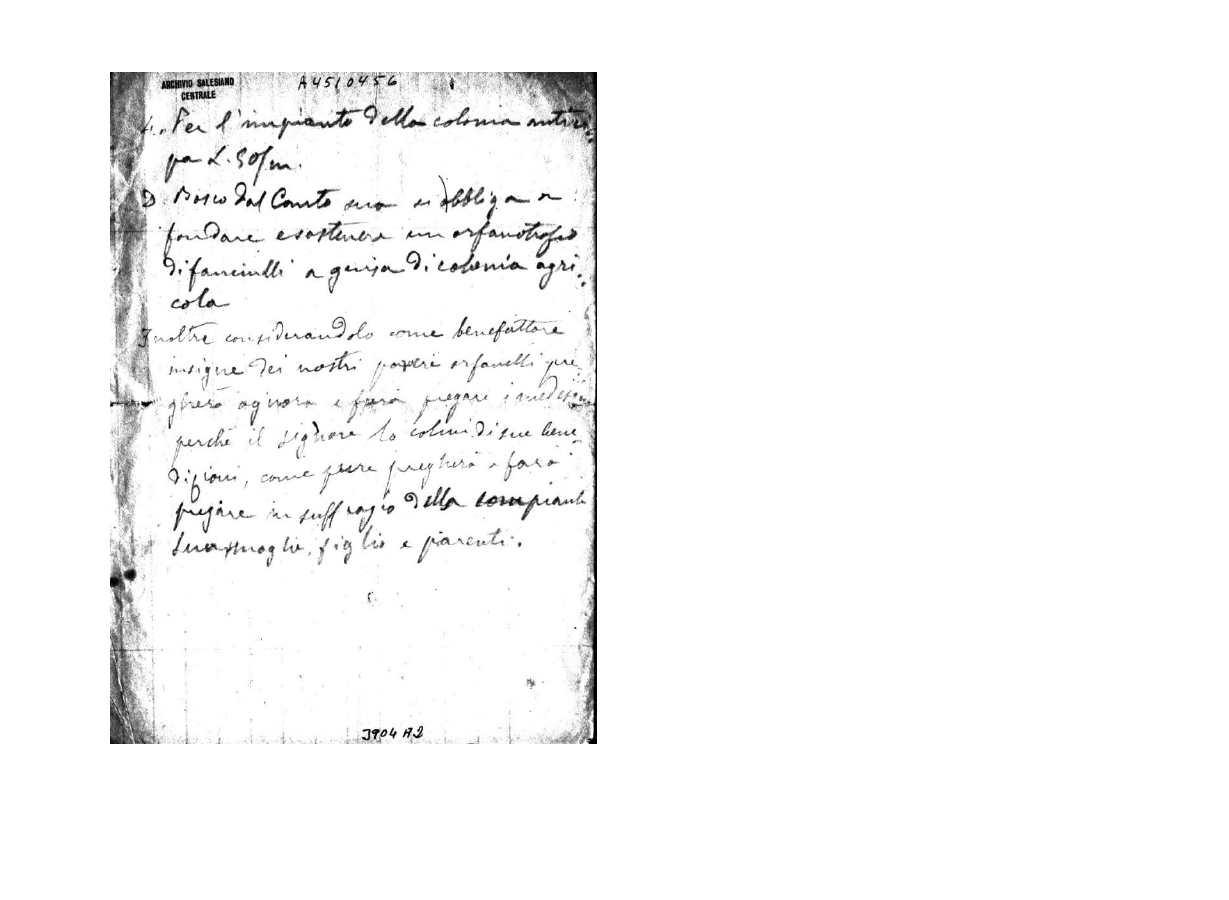 ARCHIVIO SALESIANO
CENTRALE
A4510456
4. Per l'impianto della colonia antici-
pa L. 50/m.
D. Bosco dal Canto suo si obbliga a
fondare e sostenere un orfanotrofio
di fanciulli a guisa di colonia agri-
cola
Inoltre considerandolo come benefattore
insigne dei nostri poveri orfanelli pre-
gherà ognora e farà pregare i medesimi
perchè il Signore lo colmi di sue bene-
dizioni, come pure pregherà e farà
pregare in suffragio della compianta
Sua moglie, figlio e parenti.
3904 A2